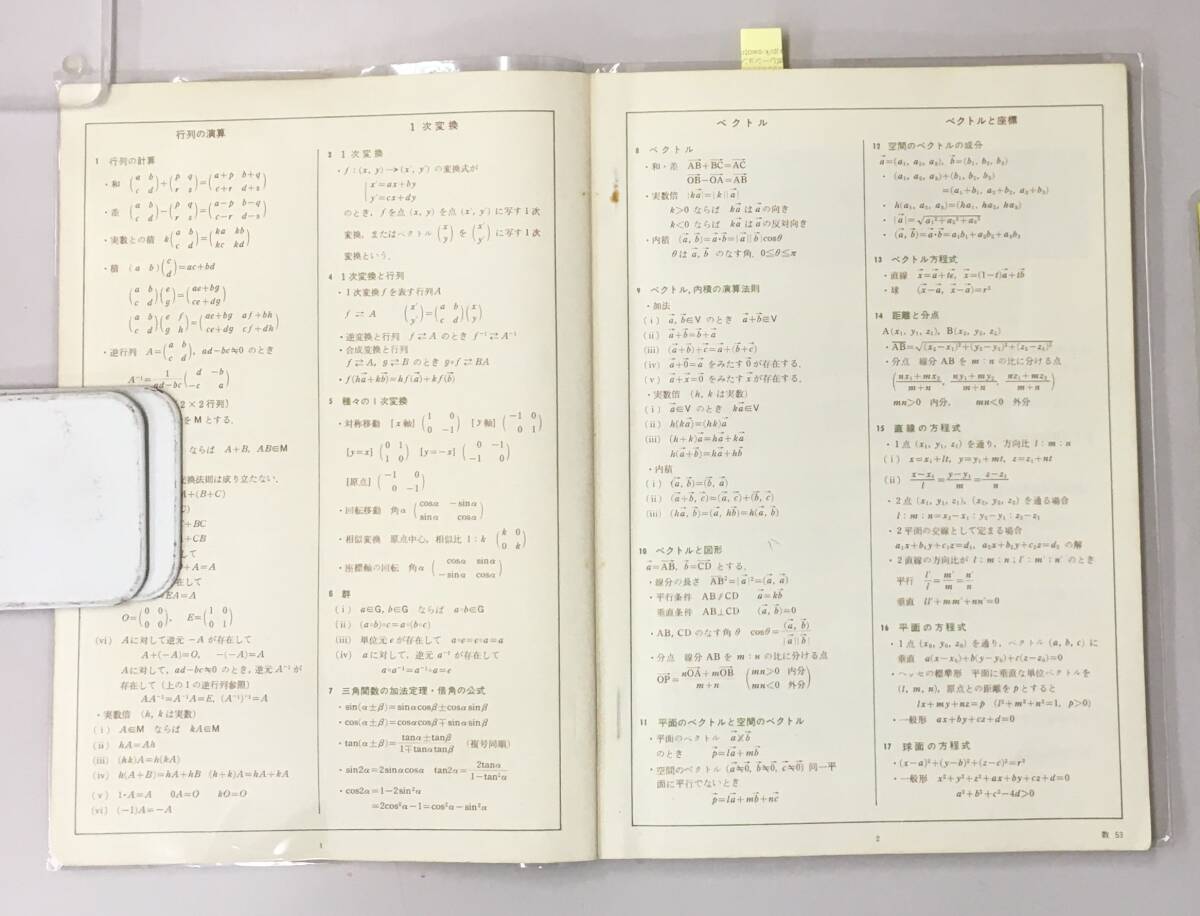 行列の演算
1 行列の計算
・和 (a b / c d)+(p q / r s)=(a+p b+q / c+r d+s)
・差 (a b / c d)−(p q / r s)=(a−p b−q / c−r d−s)
・実数との積 k(a b / c d)=(ka kb / kc kd)
・積 (a b)(c / d)=ac+bd
(a b / c d)(e / g)=(ae+bg / ce+dg)
(a b / c d)(e f / g h)=(ae+bg af+bh / ce+dg cf+dh)
・逆行列 A=(a b / c d), ad−bc≒0 のとき
A⁻¹=1/(ad−bc)(d −b / −c a)
2×2行列)
をMとする.
ならば A+B, AB∈M
換法則は成り立たない.
A+(B+C)
C)
+BC
+CB
して
D+A=A
在して
=EA=A
O=(0 0 / 0 0), E=(1 0 / 0 1)
(vi) Aに対して逆元−Aが存在して
A+(−A)=O, −(−A)=A
Aに対し, ad−bc≒0 のとき, 逆元A⁻¹が
存在して (上の1の逆行列参照)
AA⁻¹=A⁻¹A=E, (A⁻¹)⁻¹=A
・実数倍 (h, kは実数)
(i) A∈M ならば kA∈M
(ii) hA=Ah
(iii) (hk)A=h(kA)
(iv) h(A+B)=hA+hB (h+k)A=hA+kA
(v) 1・A=A 0A=O kO=O
(vi) (−1)A=−A
1次変換
2 1次変換
・f:(x, y)→(x′, y′) の変換式が
x′=ax+by
y′=cx+dy
のとき, fを点(x, y)を点(x′, y′)に写す1次
変換, またはベクトル(x / y)を(x′ / y′)に写す1次
変換という.
4 1次変換と行列
・1次変換fを表す行列A
f⇄A (x′ / y′)=(a b / c d)(x / y)
・逆変換と行列 f⇄A のとき f⁻¹⇄A⁻¹
・合成変換と行列
f⇄A, g⇄B のとき g∘f⇄BA
・f(ha⃗+kb⃗)=hf(a⃗)+kf(b⃗)
5 種々の1次変換
・対称移動 [x軸](1 0 / 0 −1) [y軸](−1 0 / 0 1)
[y=x](0 1 / 1 0) [y=−x](0 −1 / −1 0)
[原点](−1 0 / 0 −1)
・回転移動 角α (cosα −sinα / sinα cosα)
・相似変換 原点中心, 相似比1:k (k 0 / 0 k)
・座標軸の回転 角α (cosα sinα / −sinα cosα)
6 群
(i) a∈G, b∈G ならば a∘b∈G
(ii) (a∘b)∘c=a∘(b∘c)
(iii) 単位元eが存在して a∘e=e∘a=a
(iv) aに対し, 逆元a⁻¹が存在して
a∘a⁻¹=a⁻¹∘a=e
7 三角関数の加法定理・倍角の公式
・sin(α±β)=sinαcosβ±cosαsinβ
・cos(α±β)=cosαcosβ∓sinαsinβ
・tan(α±β)=(tanα±tanβ)/(1∓tanαtanβ) (複号同順)
・sin2α=2sinαcosα tan2α=2tanα/(1−tan²α)
・cos2α=1−2sin²α
=2cos²α−1=cos²α−sin²α
1
ベクトル
8 ベクトル
・和・差 AB⃗+BC⃗=AC⃗
OB⃗−OA⃗=AB⃗
・実数倍 |ka⃗|=|k||a⃗|
k>0 ならば ka⃗はa⃗の向き
k<0 ならば ka⃗はa⃗の反対向き
・内積 (a⃗, b⃗)=a⃗・b⃗=|a⃗||b⃗|cosθ
θはa⃗, b⃗のなす角, 0≦θ≦π
9 ベクトル, 内積の演算法則
・加法
(i) a⃗, b⃗∈V のとき a⃗+b⃗∈V
(ii) a⃗+b⃗=b⃗+a⃗
(iii) (a⃗+b⃗)+c⃗=a⃗+(b⃗+c⃗)
(iv) a⃗+0⃗=a⃗をみたす0⃗が存在する.
(v) a⃗+x⃗=0⃗をみたすx⃗が存在する.
・実数倍 (h, kは実数)
(i) a⃗∈V のとき ka⃗∈V
(ii) h(ka⃗)=(hk)a⃗
(iii) (h+k)a⃗=ha⃗+ka⃗
h(a⃗+b⃗)=ha⃗+hb⃗
・内積
(i) (a⃗, b⃗)=(b⃗, a⃗)
(ii) (a⃗+b⃗, c⃗)=(a⃗, c⃗)+(b⃗, c⃗)
(iii) (ha⃗, b⃗)=(a⃗, hb⃗)=h(a⃗, b⃗)
10 ベクトルと図形
a⃗=AB⃗, b⃗=CD⃗とする.
・線分の長さ AB²=|a⃗|²=(a⃗, a⃗)
・平行条件 AB∥CD a⃗=kb⃗
垂直条件 AB⊥CD (a⃗, b⃗)=0
・AB, CDのなす角θ cosθ=(a⃗, b⃗)/|a⃗||b⃗|
・分点 線分ABをm:nの比に分ける点
OP⃗=(nOA⃗+mOB⃗)/(m+n) (mn>0 内分 / mn<0 外分)
11 平面のベクトルと空間のベクトル
・平面のベクトル a⃗∦b⃗
のとき p⃗=la⃗+mb⃗
・空間のベクトル(a⃗≒0, b⃗≒0, c⃗≒0) 同一平
面に平行でないとき
p⃗=la⃗+mb⃗+nc⃗
ベクトルと座標
12 空間のベクトルの成分
a⃗=(a₁, a₂, a₃), b⃗=(b₁, b₂, b₃)
・(a₁, a₂, a₃)+(b₁, b₂, b₃)
=(a₁+b₁, a₂+b₂, a₃+b₃)
・h(a₁, a₂, a₃)=(ha₁, ha₂, ha₃)
・|a⃗|=√(a₁²+a₂²+a₃²)
・(a⃗, b⃗)=a⃗・b⃗=a₁b₁+a₂b₂+a₃b₃
13 ベクトル方程式
・直線 x⃗=a⃗+te⃗, x⃗=(1−t)a⃗+tb⃗
・球 (x⃗−a⃗, x⃗−a⃗)=r²
14 距離と分点
A(x₁, y₁, z₁), B(x₂, y₂, z₂)
・AB=√((x₂−x₁)²+(y₂−y₁)²+(z₂−z₁)²)
・分点 線分ABをm:nの比に分ける点
((nx₁+mx₂)/(m+n), (ny₁+my₂)/(m+n), (nz₁+mz₂)/(m+n))
mn>0 内分, mn<0 外分
15 直線の方程式
・1点(x₁, y₁, z₁)を通り, 方向比l:m:n
(i) x=x₁+lt, y=y₁+mt, z=z₁+nt
(ii) (x−x₁)/l=(y−y₁)/m=(z−z₁)/n
・2点(x₁, y₁, z₁), (x₂, y₂, z₂)を通る場合
l:m:n=x₂−x₁:y₂−y₁:z₂−z₁
・2平面の交線として定まる場合
a₁x+b₁y+c₁z=d₁, a₂x+b₂y+c₂z=d₂ の解
・2直線の方向比がl:m:n; l′:m′:n′のとき
平行 l′/l=m′/m=n′/n
垂直 ll′+mm′+nn′=0
16 平面の方程式
・1点(x₀, y₀, z₀)を通り, ベクトル(a, b, c)に
垂直 a(x−x₀)+b(y−y₀)+c(z−z₀)=0
・ヘッセの標準形 平面に垂直な単位ベクトルを
(l, m, n), 原点との距離をpとすると
lx+my+nz=p (l²+m²+n²=1, p>0)
・一般形 ax+by+cz+d=0
17 球面の方程式
・(x−a)²+(y−b)²+(z−c)²=r²
・一般形 x²+y²+z²+ax+by+cz+d=0
a²+b²+c²−4d>0
2
数 53